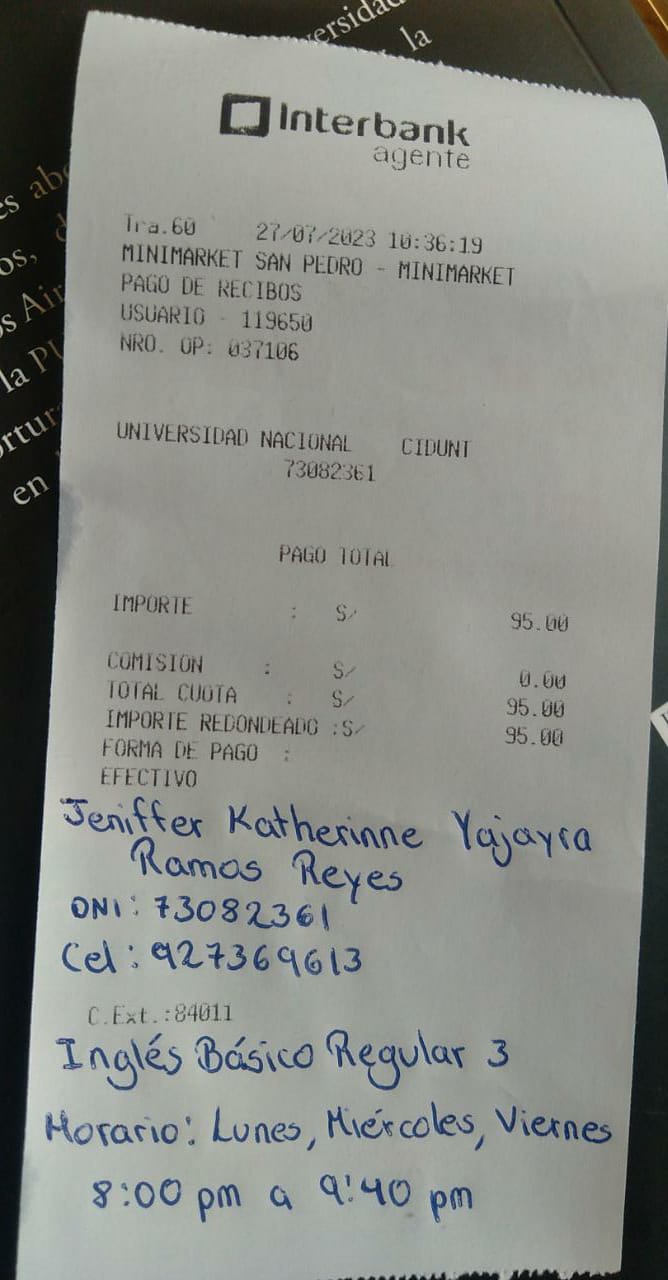 versidad
la
Interbank
agente
Tra.60 27/07/2023 10:36:19
MINIMARKET SAN PEDRO - MINIMARKET
PAGO DE RECIBOS
USUARIO - 119650
NRO. OP: 037106
UNIVERSIDAD NACIONAL CIDUNT
73082361
PAGO TOTAL
IMPORTE : S/ 95.00
COMISION : S/ 0.00
TOTAL CUOTA : S/ 95.00
IMPORTE REDONDEADO :S/ 95.00
FORMA DE PAGO :
EFECTIVO
Jeniffer Katherinne Yajayra
Ramos Reyes
DNI: 73082361
Cel: 927369613
C.Ext.:84011
Inglés Básico Regular 3
Horario: Lunes, Miércoles, Viernes
8:00 pm a 9:40 pm
la
en